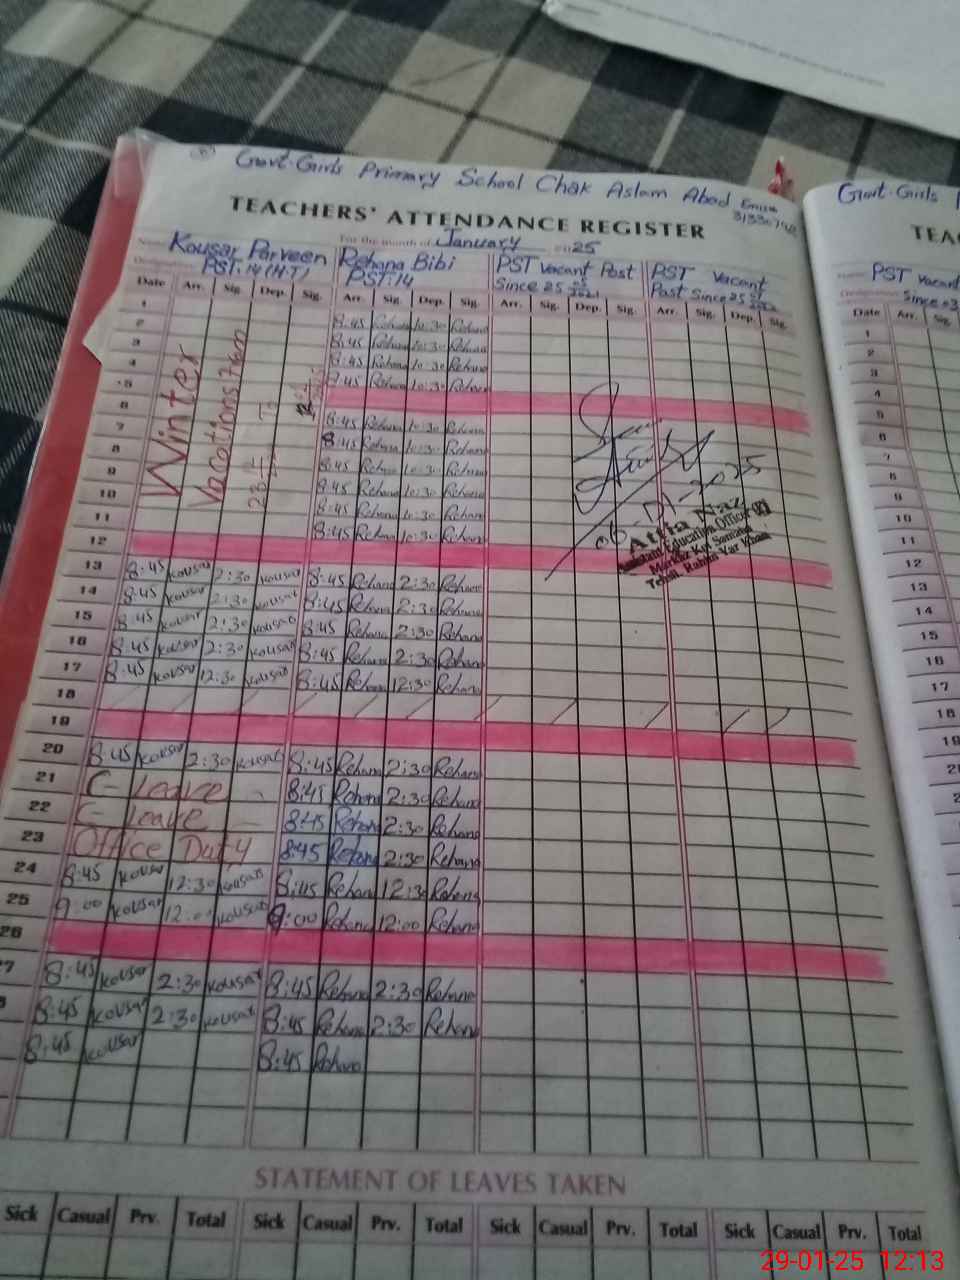 Govt. Girls Primary School Chak Aslam Abad Emis#
TEACHERS' ATTENDANCE REGISTER
For the month of January 2025
Kousar Parveen Rehana Bibi PST Vacant Post PST Vacant
PST:14 (H.T) PST:14 Since 25 Post Since 25
Date Arr. Sig. Dep. Sig. Arr. Sig. Dep. Sig. Arr. Sig. Dep. Sig. Arr. Sig. Dep. Sig.
Winter
Vacations from
To
1
2 8:45 Rehana 10:30 Rehana
3 8:45 Rehana 10:30 Rehana
4 8:45 Rehana 10:30 Rehana
5 8:45 Rehana 10:30 Rehana
6
7 8:45 Rehana 10:30 Rehana
8 8:45 Rehana 10:30 Rehana
9 8:45 Rehana 10:30 Rehana
10 8:45 Rehana 10:30 Rehana
11 8:45 Rehana 10:30 Rehana
8:45 Rehana 10:30 Rehana
12
06-01-2025
Attia Naz
Assistant Education Officer
Markaz Kot Samaba
Tehsil, Rahim Yar Khan
13 8:45 Kousar 2:30 Kousar 8:45 Rehana 2:30 Rehana
14 8:45 Kousar 2:30 Kousar 8:45 Rehana 2:30 Rehana
15 8:45 Kousar 2:30 Kousar 8:45 Rehana 2:30 Rehana
16 8:45 Kousar 2:30 Kousar 8:45 Rehana 2:30 Rehana
17 8:45 Kousar 12:30 Kousar 8:45 Rehana 12:30 Rehana
18
19
20 8:45 Kousar 2:30 Kousar 8:45 Rehana 2:30 Rehana
21 C-Leave 8:45 Rehana 2:30 Rehana
22 C-Leave 8:45 Rehana 2:30 Rehana
23 Office Duty 8:45 Rehana 2:30 Rehana
24 8:45 Kousar 12:30 Kousar 8:45 Rehana 12:30 Rehana
25 9:00 Kousar 12:00 Kousar 9:00 Rehana 12:00 Rehana
26
7 8:45 Kousar 2:30 Kousar 8:45 Rehana 2:30 Rehana
8:45 Kousar 2:30 Kousar 8:45 Rehana 2:30 Rehana
8:45 Kousar 8:45 Rehana
STATEMENT OF LEAVES TAKEN
Sick Casual Prv. Total Sick Casual Prv. Total Sick Casual Prv. Total Sick Casual Prv. Total
Govt. Girls
TEA
PST vacant
Since
Date Arr. Sig.
1
2
3
4
5
6
7
8
9
10
11
12
13
14
15
16
17
18
19
29-01-25 12:13